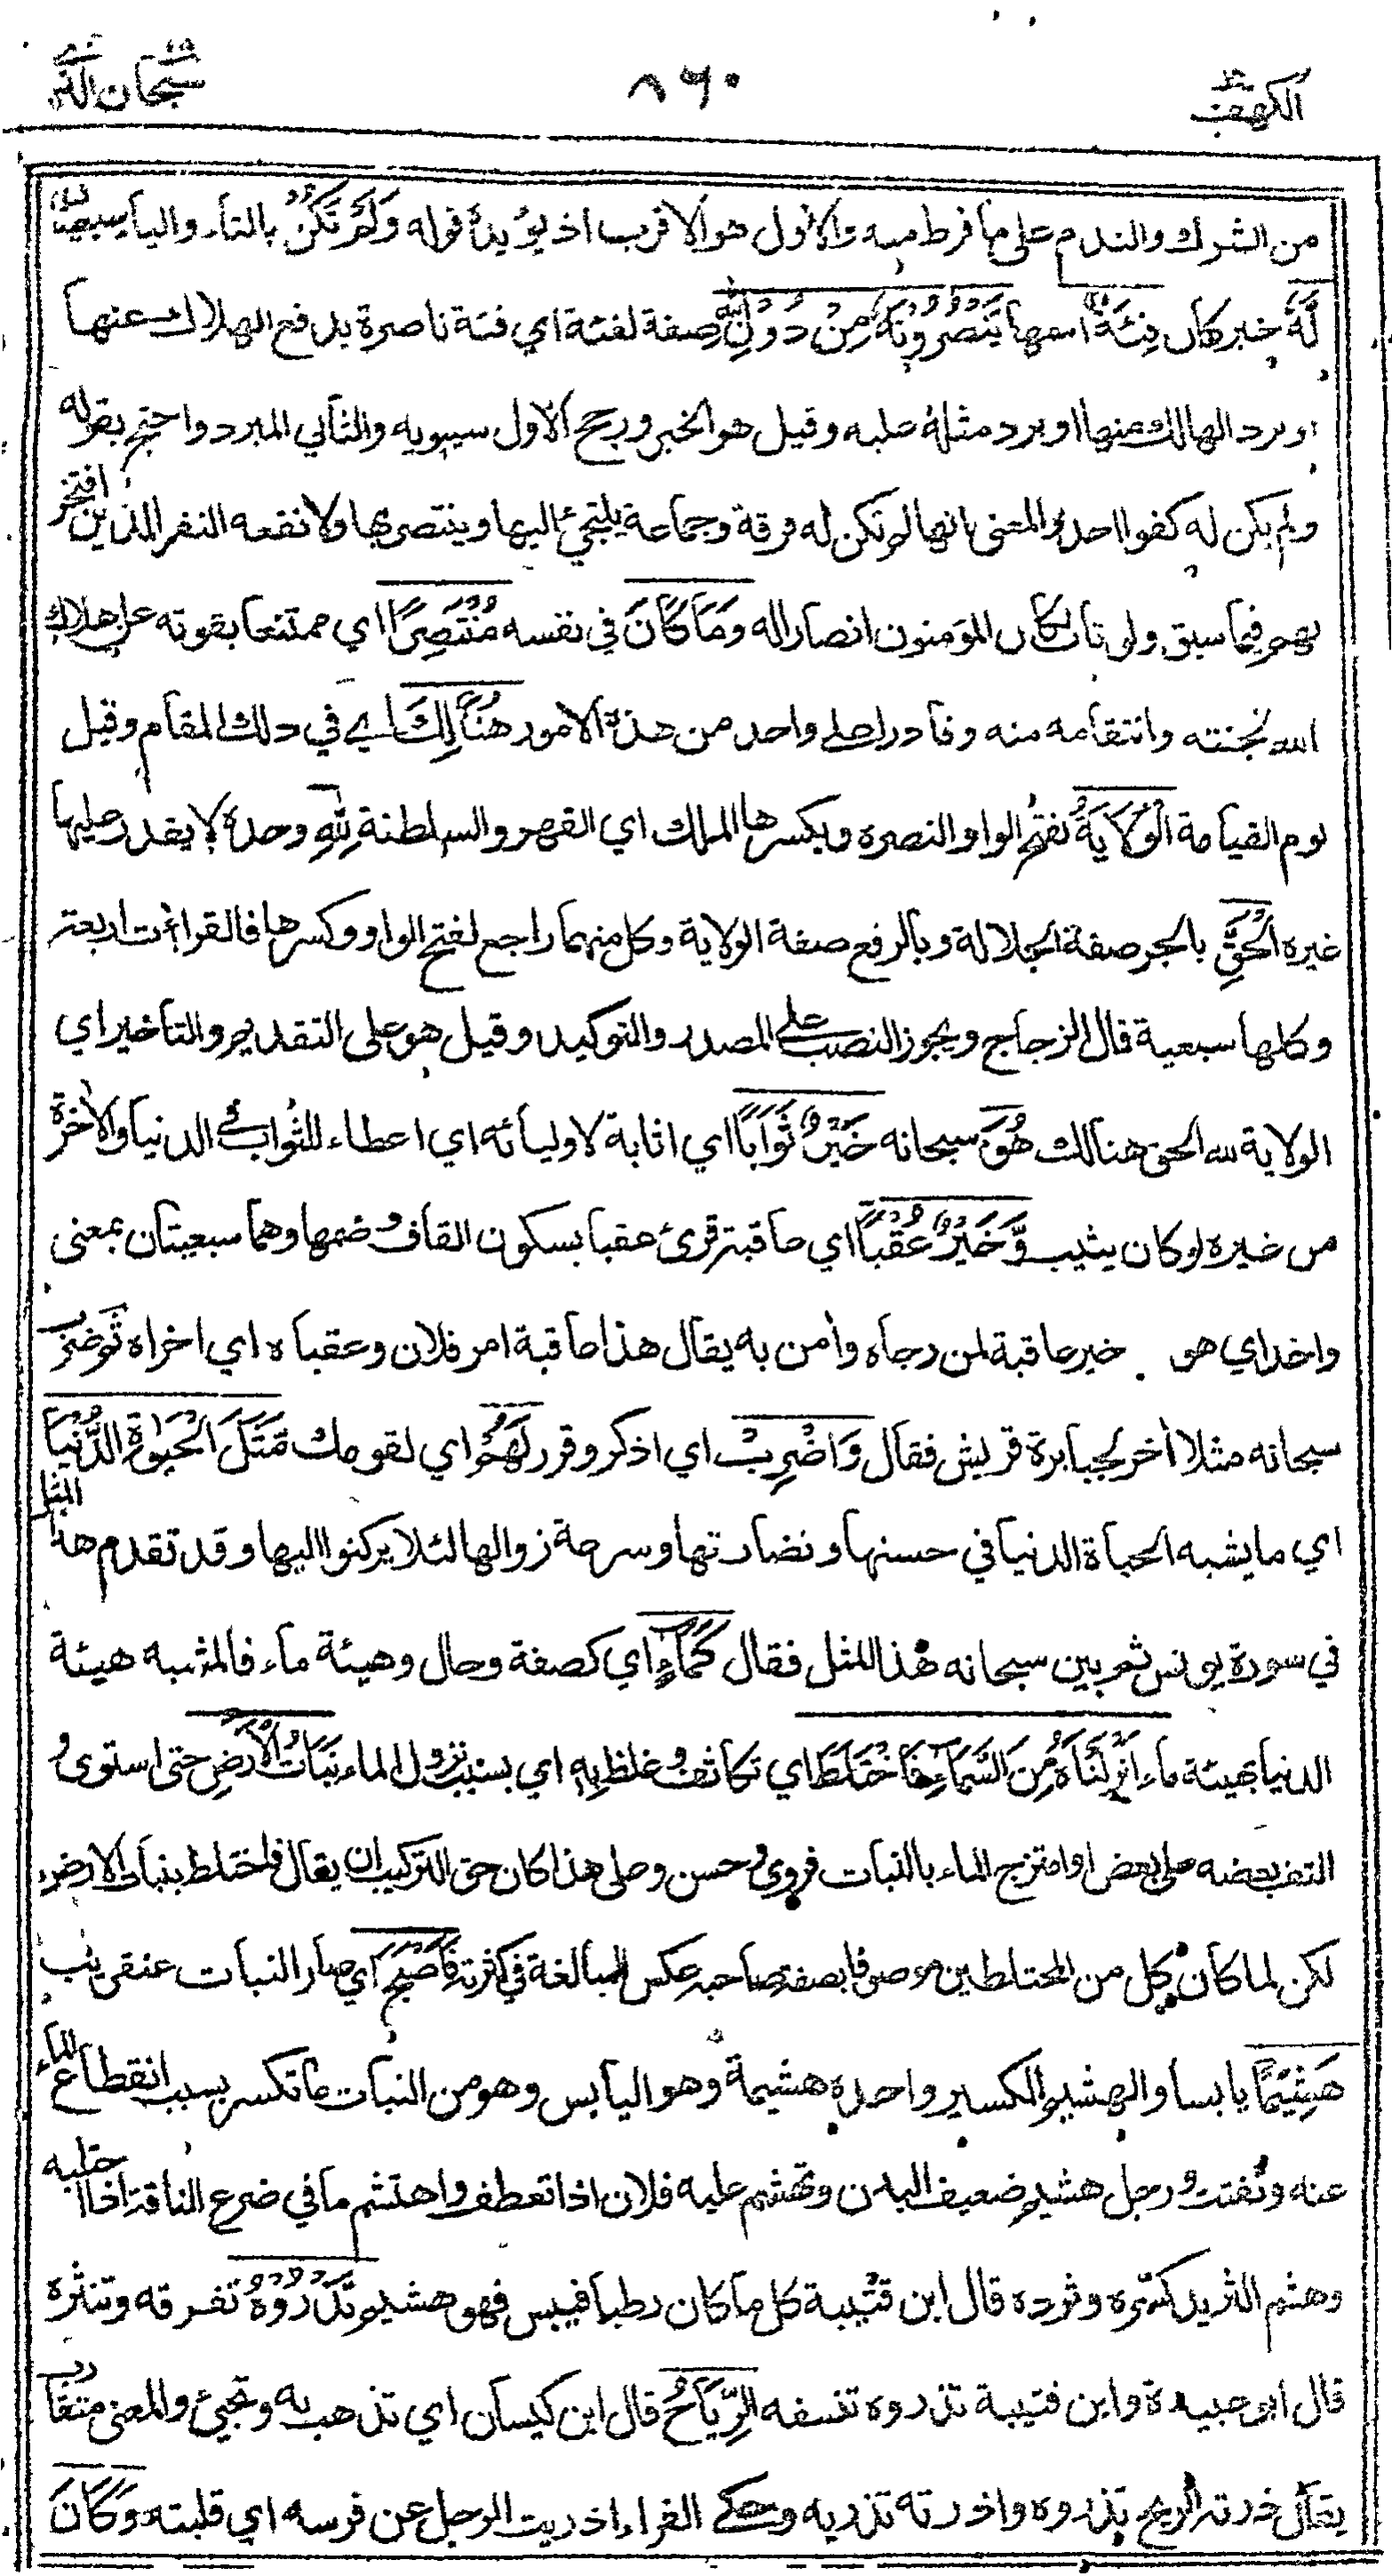 الكهف ٨٦٠ سبحان الذي
من الشرك والندم على ما فرط منه والاول هو الاقرب اذ يؤيده قوله وَلَمْ تَكُنْ بالتاء والياء سبعيتان
لَّهُ خبر كان فِئَةٌ اسمها يَنْصُرُونَهُ مِنْ دُوْنِ اللهِ صفة لفئة اي فئة ناصرة بدفع الهلاك عنها
او برد الهالك منها او برد مثله عليه وقيل هو الخبر ورجح الاول سيبويه والثاني المبرد واحتج بقوله
ولم يكن له كفوا احد والمعنى انها لم تكن له فرقة وجماعة يلتجئ اليها وينتصر بها ولا نفعه النفر الذين افتخر
بهم فيما سبق ولو تاب لكان المؤمنون انصارا له وَمَا كَانَ في نفسه مُنْتَصِرًا اي ممتنعا بقوته عن هلاك
الله لجنته وانتقامه منه وقادرا على واحد من هذه الامور هُنَالِكَ اي في ذلك المقام وقيل
يوم القيامة الْوَلَايَةُ بفتح الواو النصرة وبكسرها الملك اي القهر والسلطنة لِلّٰهِ وحده لا يقدر عليها
غيره الْحَقِّ بالجر صفة الجلالة وبالرفع صفة الولاية وكل منهما راجع لفتح الواو وكسرها فالقراءات اربعة
وكلها سبعية قال الزجاج ويجوز النصب على المصدر والتوكيد وقيل هو على التقديم والتاخير اي
الولاية لله الحق هنالك هُوَ سبحانه خَيْرٌ ثَوَابًا اي اثابة لاوليائه اي اعطاء للثواب في الدنيا والاخرة
من غيره لو كان يثيب وَّخَيْرٌ عُقْبًا اي عاقبة قرئ عقبا بسكون القاف وضمها وهما سبعيتان بمعنى
واحد اي هو خير عاقبة لمن رجاه وآمن به يقال هذا عاقبة امر فلان وعقباه اي اخراه ثم ضرب
سبحانه مثلا آخر لجبابرة قريش فقال وَاضْرِبْ اي اذكر وقرر لَهُمْ اي لقومك مَثَلَ الْحَيٰوةِ الدُّنْيَا
اي ما يشبه الحياة الدنيا في حسنها ونضارتها وسرعة زوالها لئلا يركنوا اليها وقد تقدم هذا المثل
في سورة يونس ثم بين سبحانه هذا المثل فقال كَمَاءٍ اي كصفة وحال وهيئة ماء فالمشبه هيئة
الدنيا بهيئة ماء اَنْزَلْنَاهُ مِنَ السَّمَاءِ فَاخْتَلَطَ اي تكاثف وغلظ بِهٖ اي بسبب نزول الماء نَبَاتُ الْاَرْضِ حتى استوى و
التف بعضه على بعض او امتزج الماء بالنبات فروى وحسن وعلى هذا كان حق التركيب ان يقال فاختلط بنبات الارض
لكن لما كان كل من المختلطين موصوفا بصفة صاحبه عكس للمبالغة في كثرته فَاَصْبَحَ اي صار النبات عن قريب
هَشِيْمًا يابسا والهشيم الكسير واحده هشيمة وهو اليابس وهو من النبات ما تكسر بسبب انقطاع الماء
عنه وتفتت ورجل هشيم ضعيف البدن وتهشم عليه فلان اذا تعطف واهتشم ما في ضرع الناقة اذا احتلبه
وهشم الثريد كسره وثرده قال ابن قتيبة كل ما كان رطبا فيبس فهو هشيم تَذْرُوْهُ تفرقه وتنثره
قال ابو عبيدة وابن قتيبة تذروه تنسفه الرِّيَاحُ قال ابن كيسان اي تذهب به وتجيء والمعنى متقارب
يقال ذرته الريح تذروه واذرته تذريه وحكى الفراء اذريت الرجل عن فرسه اي قلبته وَكَانَ